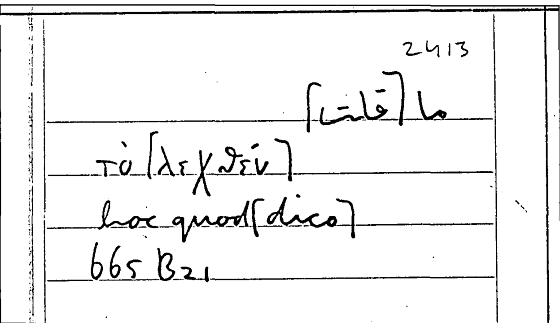 2413
ما [قلت]
τὸ [λεχθέν]
hoc quod [dico]
665 B21